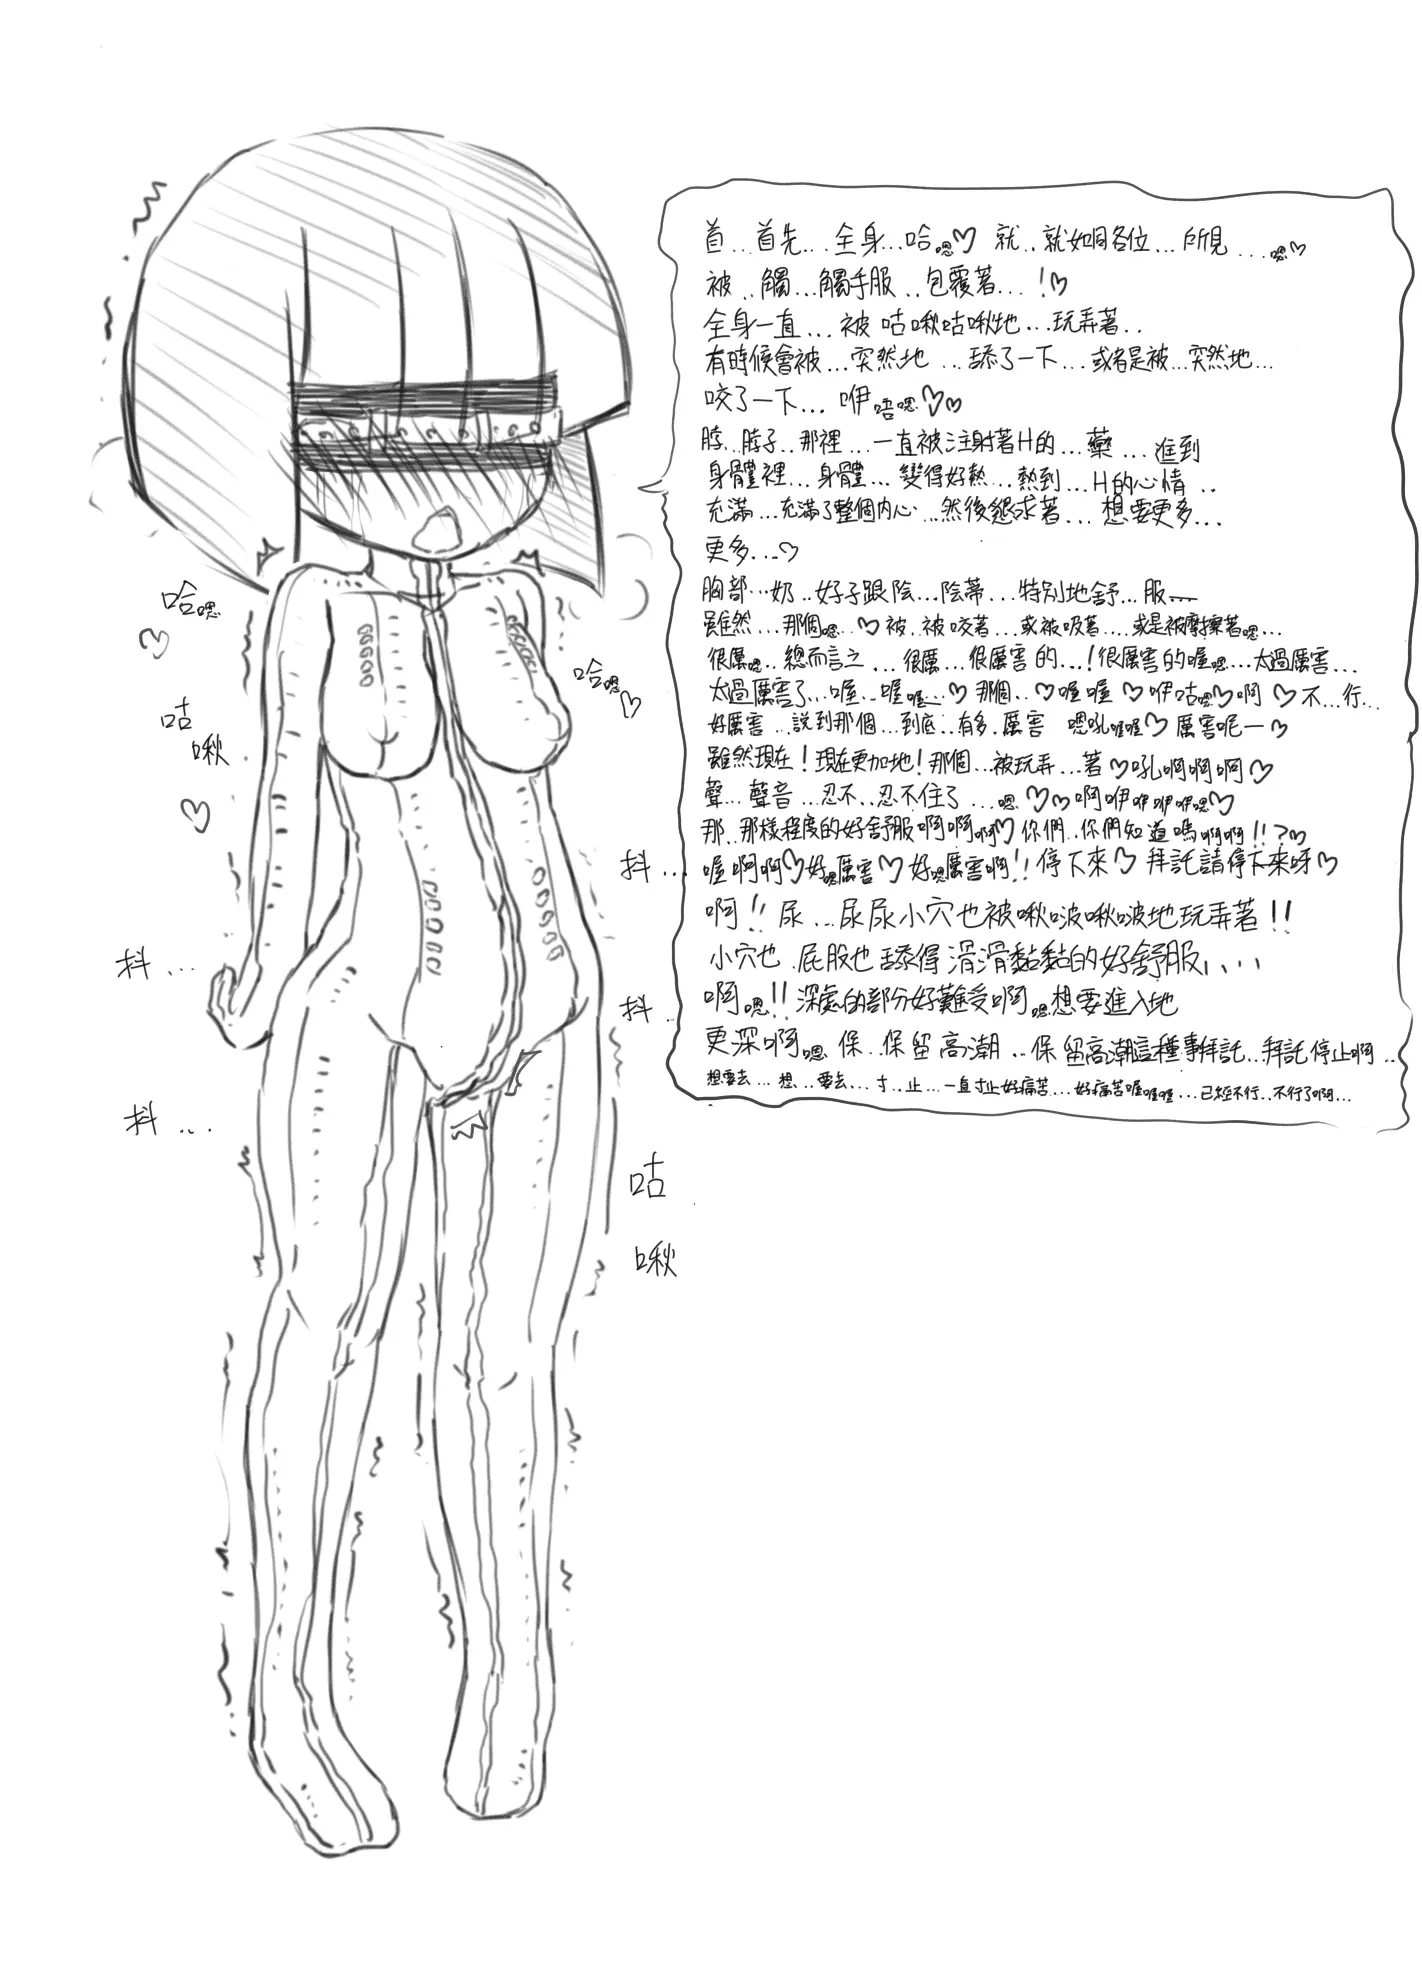 首...首先...全身...哈嗯♡ 就..就如同各位...所見....嗯♡
被..觸...觸手服..包覆著...!♡
全身一直...被咕啾咕啾地...玩弄著..
有時候會被...突然地...舔了一下...或者是被...突然地...
咬了一下...咿唔嗯♡♡
脖..脖子..那裡...一直被注射著H的...藥...進到
身體裡...身體...變得好熱...熱到...H的心情..
充滿...充滿了整個內心...然後懇求著...想要更多...
更多...♡
胸部...奶..好子跟陰...陰蒂...特別地舒...服——
雖然...那個嗯..♡被..被咬著...或被吸著...或是被磨擦著嗯...
很厲嗯..總而言之...很厲...很厲害的...!很厲害的喔嗯...太過厲害...
太過厲害了...喔..喔喔...♡那個..♡喔喔♡咿咕嗯♡啊♡不...行...
好厲害...說到那個...到底..有多.厲害 嗯吼喔喔♡厲害呢一♡
雖然現在!現在更加地!那個...被玩弄...著♡吼啊啊啊♡
聲...聲音...忍不..忍不住了...嗯♡♡啊咿咿咿咿嗯♡
那..那樣程度的好舒服啊啊啊♡你們..你們知道嗎啊啊!!?♡
喔啊啊♡好嗯厲害♡好嗯厲害啊!!停下來♡拜託請停下來呀♡
啊!!尿...尿尿小穴也被啾啵啾啵地玩弄著!!
小穴也.屁股也舔得滑滑黏黏的好舒服....
啊嗯!!深處的部分好難受啊嗯想要進入地
更深啊嗯 保..保留高潮..保留高潮這種事拜託..拜託停止啊..
想要去...想..要去...寸..止...一直寸止好痛苦...好痛苦喔喔喔...已經不行..不行了啊...
哈嗯
♡
哈嗯♡
咕
啾
♡
抖...
抖...
抖..
抖...
咕
啾